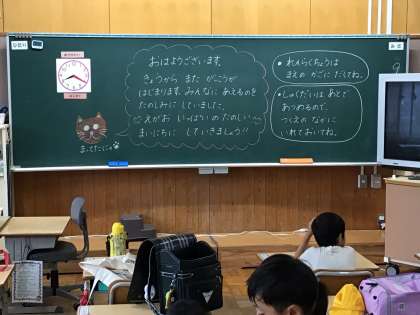 おはようございます。
きょうから また がっこうが
はじまります。みんなに あえるのを
たのしみに していました。
えがお いっぱいの たのしい
まいにちに していきましょう!!
まってたにゃ
●れんらくちょうは
まえの かごに だしてね。
●しゅくだいは あとで
あつめるので、
つくえの なかに
いれておいてね。